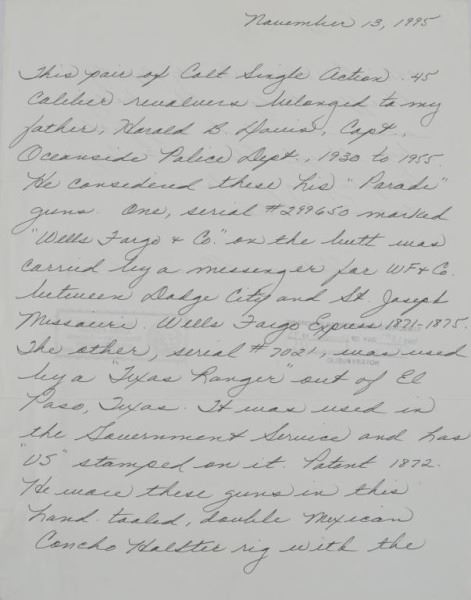 November 13, 1995
This pair of Colt Single Action .45
Caliber revolvers belonged to my
father, Harold B. Davis, Capt.,
Oceanside Police Dept., 1930 to 1955.
He considered these his "Parade"
guns. One, serial #299650 marked
"Wells Fargo & Co." on the butt was
carried by a messenger for WF & Co.
between Dodge City and St. Joseph
Missouri. Wells Fargo Express 1871-1875.
The other, serial #7021, was used
by a "Texas Ranger" out of El
Paso, Texas. It was used in
the Government Service and has
"US" stamped on it. Patent 1872.
He wore these guns in this
hand tooled, double Mexican
Concho Holster rig with the